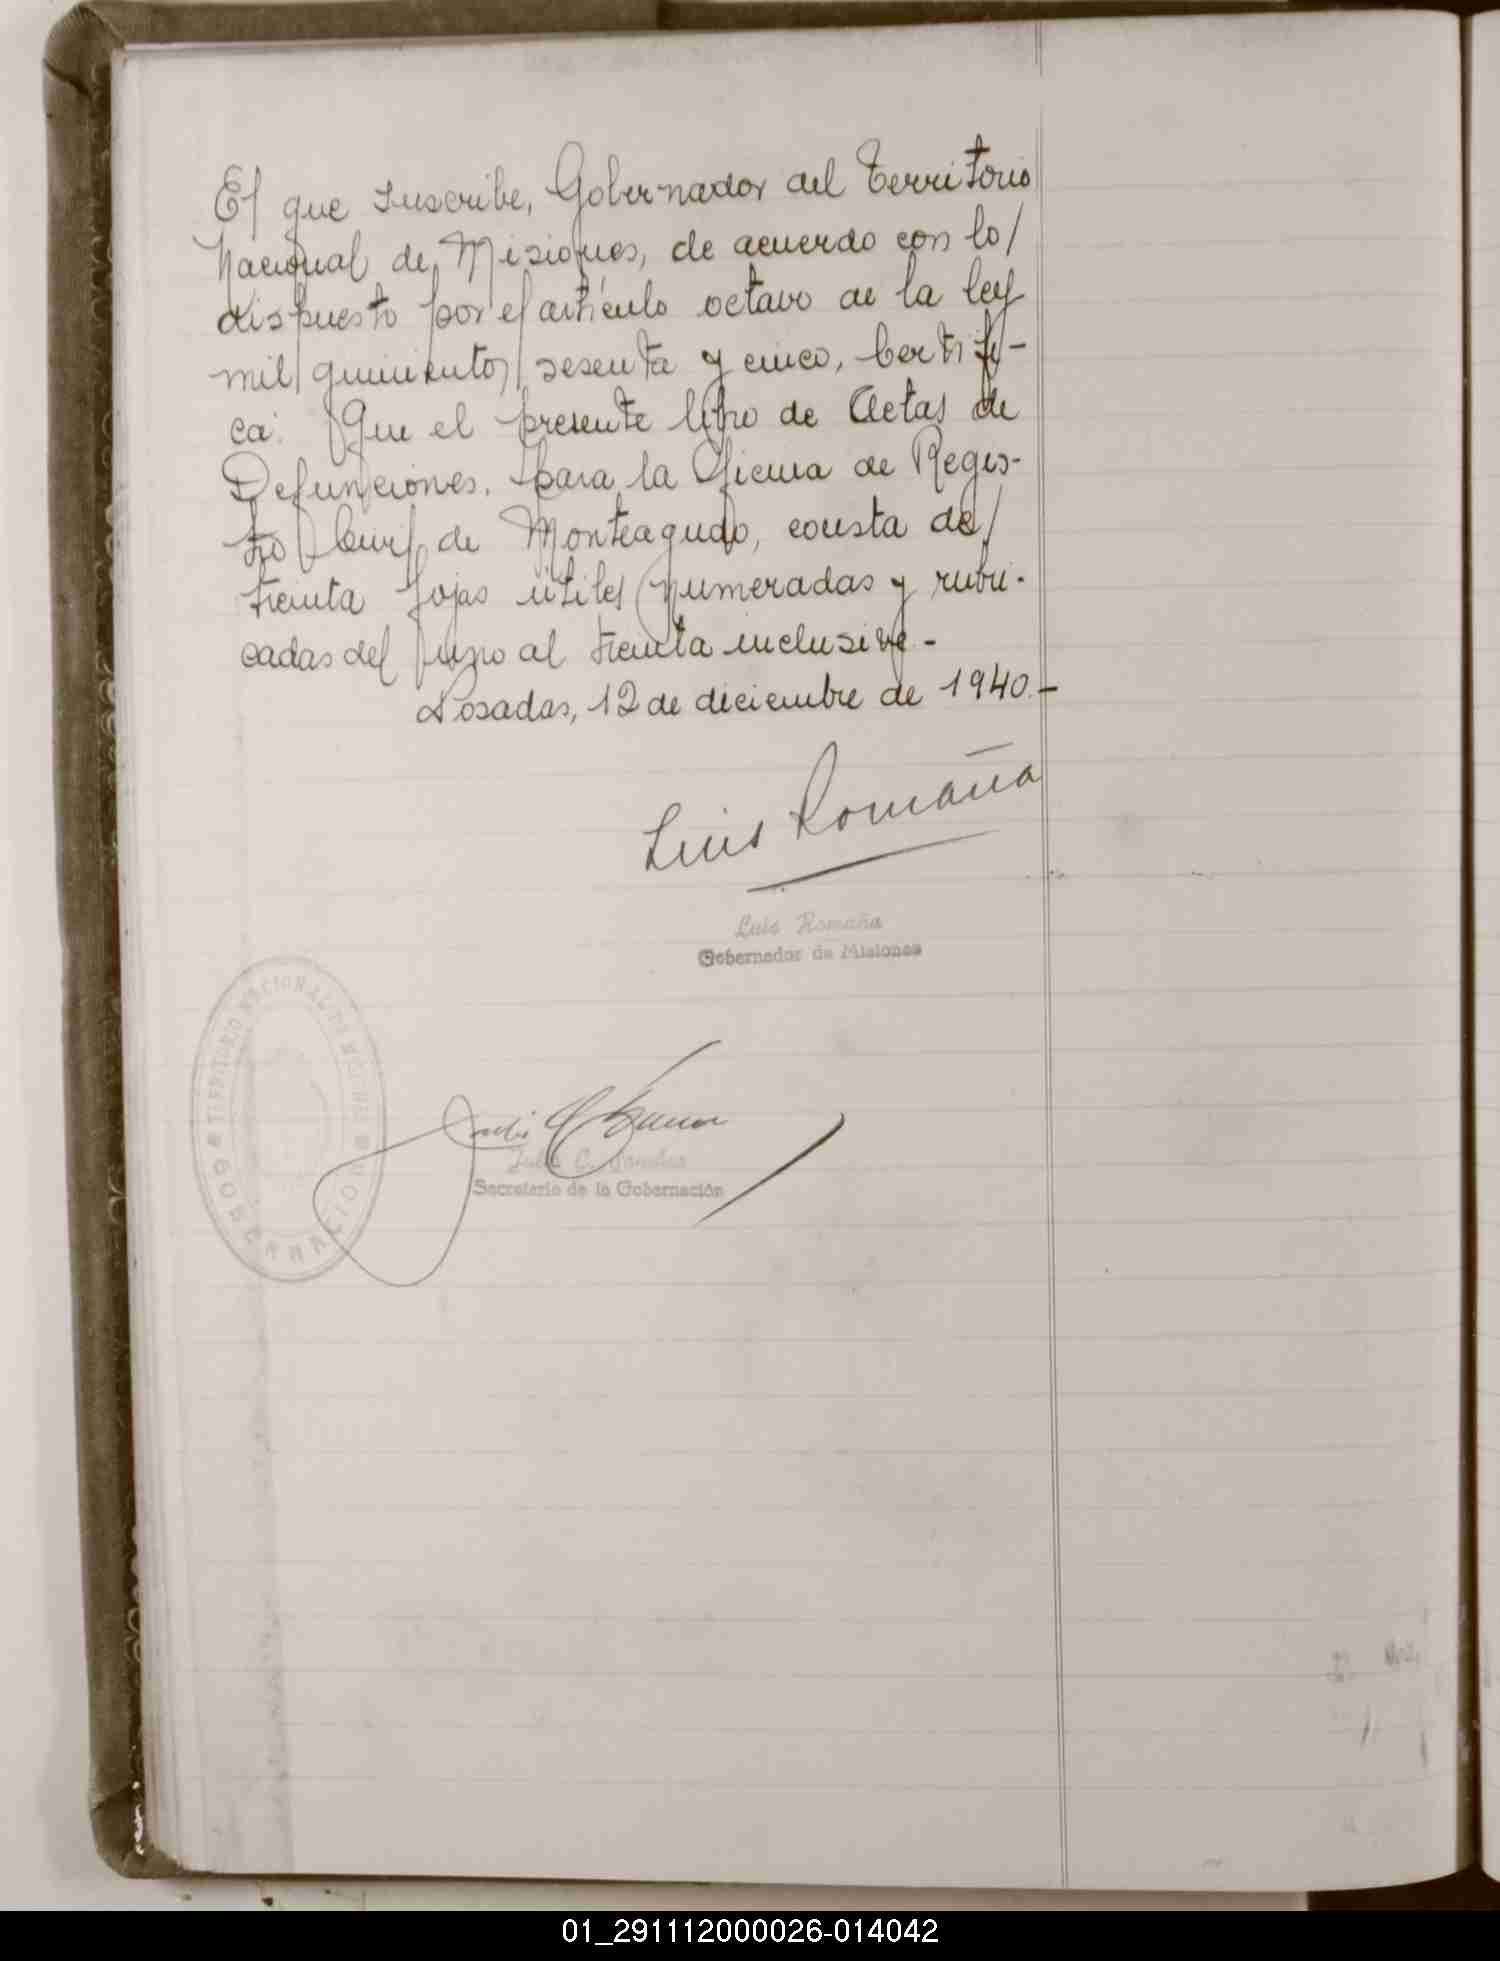 El que suscribe, Gobernador del Territorio
Nacional de Misiones, de acuerdo con lo/
dispuesto por el artículo octavo de la ley
mil quinientos sesenta y cinco, Certifi-
ca: Que el presente libro de Actas de
Defunciones, para la Oficina de Regis-
tro Civil de Monteagudo, consta de/
treinta fojas útiles numeradas y rubri-
cadas del uno al treinta inclusive.-
Posadas, 12 de diciembre de 1940.-
Luis Romaña
Luis Romaña
Gobernador de Misiones
TERRITORIO NACIONAL DE MISIONES
GOBERNACION
Julio C.
Julio C.
Secretario de la Gobernación
01_291112000026-014042